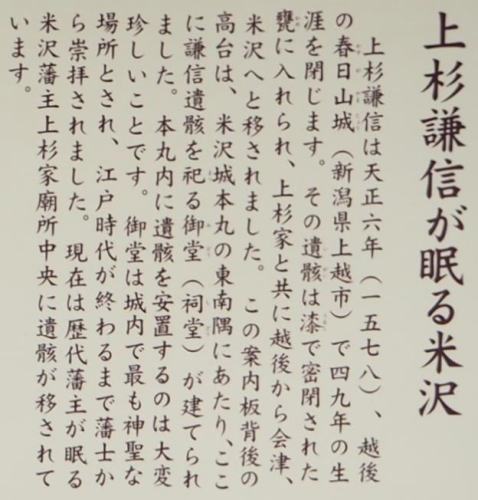 上杉謙信が眠る米沢
上杉謙信は天正六年（一五七八）、越後
の春日山城（新潟県上越市）で四九年の生
涯を閉じます。その遺骸は漆で密閉された
甕に入れられ、上杉家と共に越後から会津、
米沢へと移されました。この案内板背後の
高台は、米沢城本丸の東南隅にあたり、ここ
に謙信遺骸を祀る御堂（祠堂）が建てられ
ました。本丸内に遺骸を安置するのは大変
珍しいことです。御堂は城内で最も神聖な
場所とされ、江戸時代が終わるまで藩士か
ら崇拝されました。現在は歴代藩主が眠る
米沢藩主上杉家廟所中央に遺骸が移されて
います。